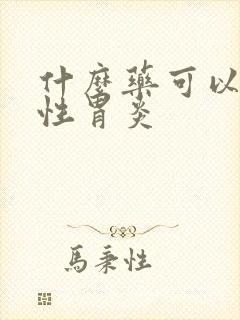 什麼藥可以
性胃炎
馬秉性